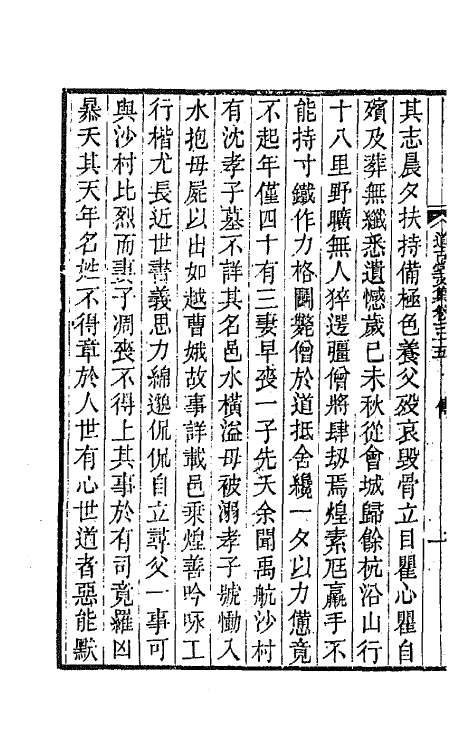 其志晨夕扶持備極色養父歿哀毀骨立目瞿心瞿自
殯及葬無纖悉遺憾歲己未秋從會城歸餘杭沿山行
十八里野曠無人猝遌彊僧將肆刼焉煌素尫羸手不
能持寸鐵作力格鬭斃僧於道抵舍纔一夕以力憊竟
不起年僅四十有三妻早喪一子先夭余聞禹航沙村
有沈孝子墓不詳其名邑水橫溢母被溺孝子號慟入
水抱母屍以出如越曹娥故事詳載邑乘煌善吟咏工
行楷尤長近世書義思力綿邈侃侃自立尋父一事可
與沙村比烈而妻子凋喪不得上其事於有司竟罹凶
暴夭其天年名姓不得章於人世有心世道者惡能默
道古堂文集卷三十五 傳 一